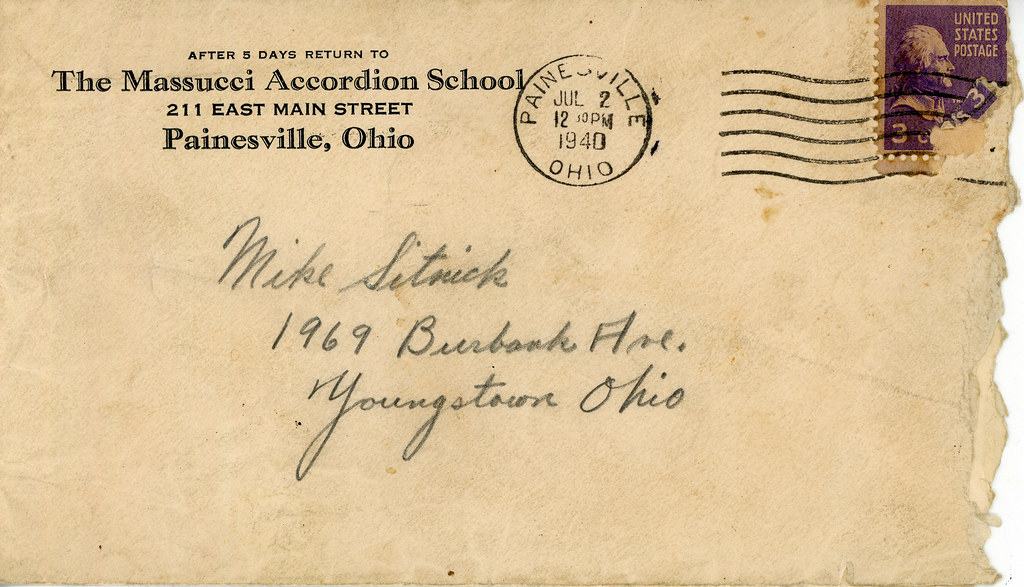 AFTER 5 DAYS RETURN TO
The Massucci Accordion School
211 EAST MAIN STREET
Painesville, Ohio
PAINESVILLE
JUL 2
12 30 PM
1940
OHIO
UNITED
STATES
POSTAGE
3
Mike Sitnick
1969 Burbank Ave.
Youngstown Ohio